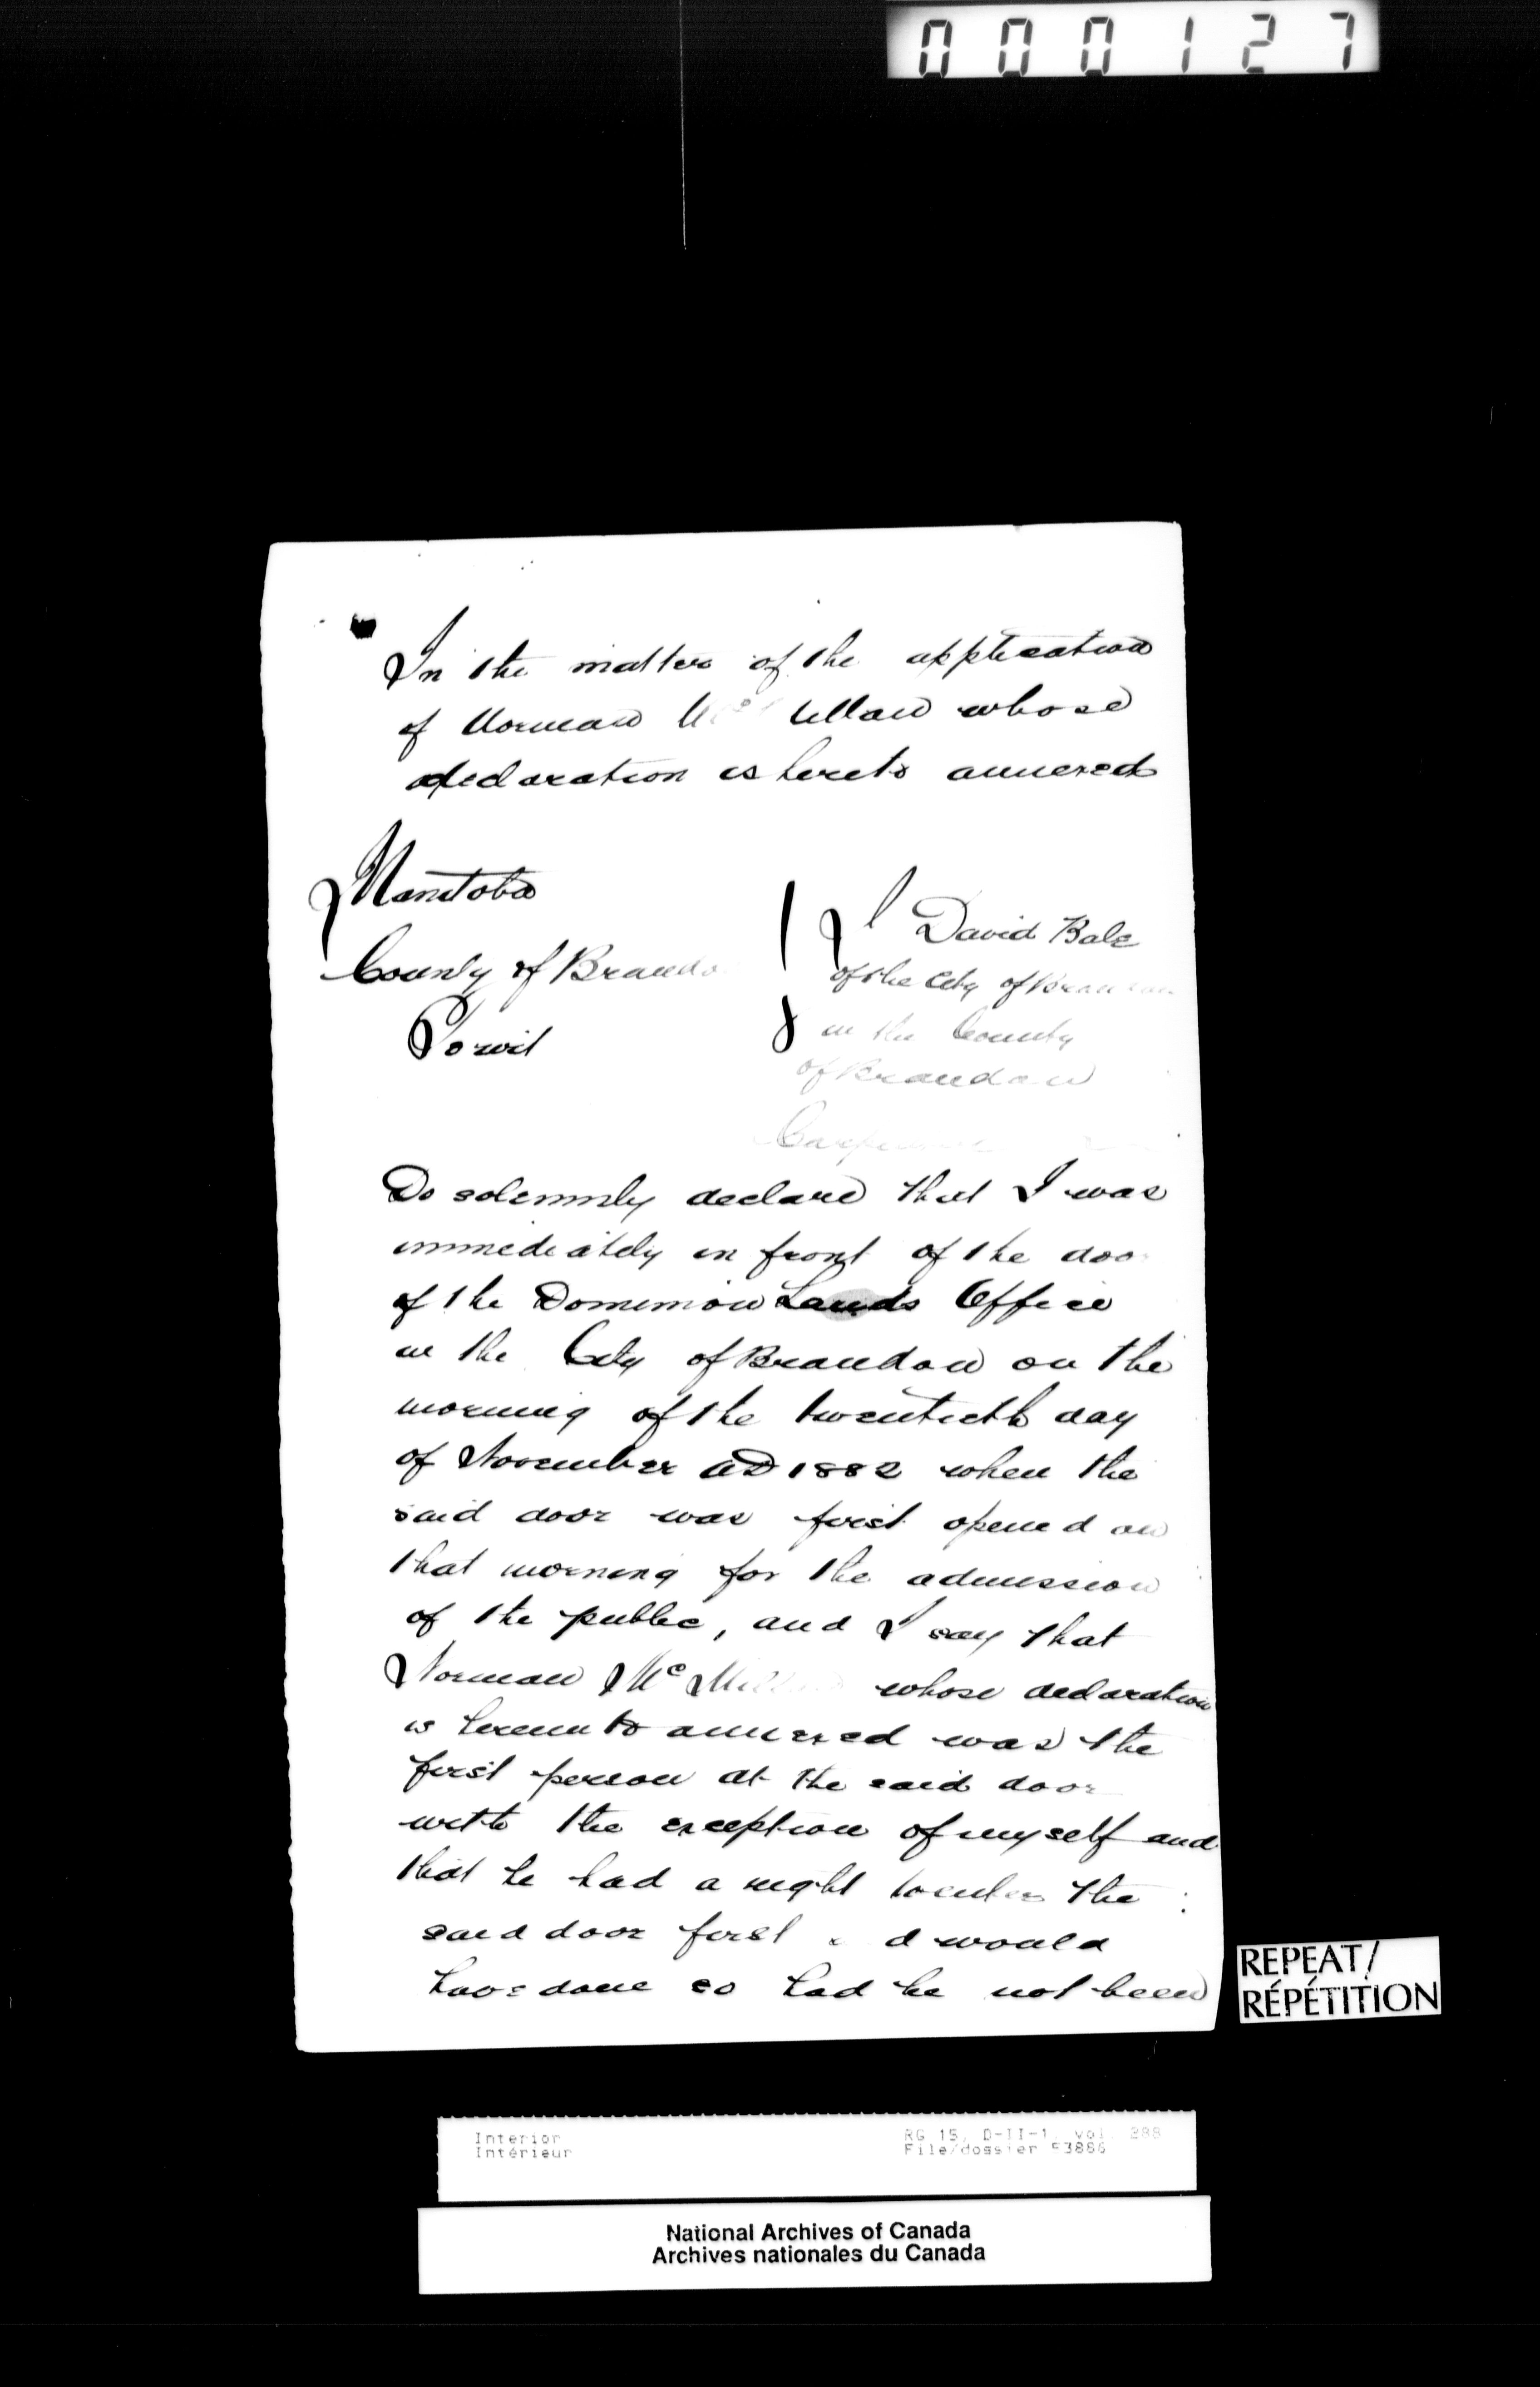 000127
In the matter of the application
of Norman Mc whose
declaration is hereto annexed
Manitoba
County of Brandon
To wit
I David Bale
of the City of Brandon
in the County
of Brandon
Do solemnly declare that I was
immediately in front of the door
of the Dominion Lands Office
in the City of Brandon on the
morning of the twentieth day
of November AD 1882 when the
said door was first opened on
that morning for the admission
of the public, and I say that
Norman McMillan whose declaration
is hereunto annexed was the
first person at the said door
with the exception of myself and
that he had a right to enter the
said door first and would
have done so had he not been
REPEAT/
RÉPÉTITION
Interior RG 15, D-II-1, vol. 288
Intérieur File/dossier 53886
National Archives of Canada
Archives nationales du Canada